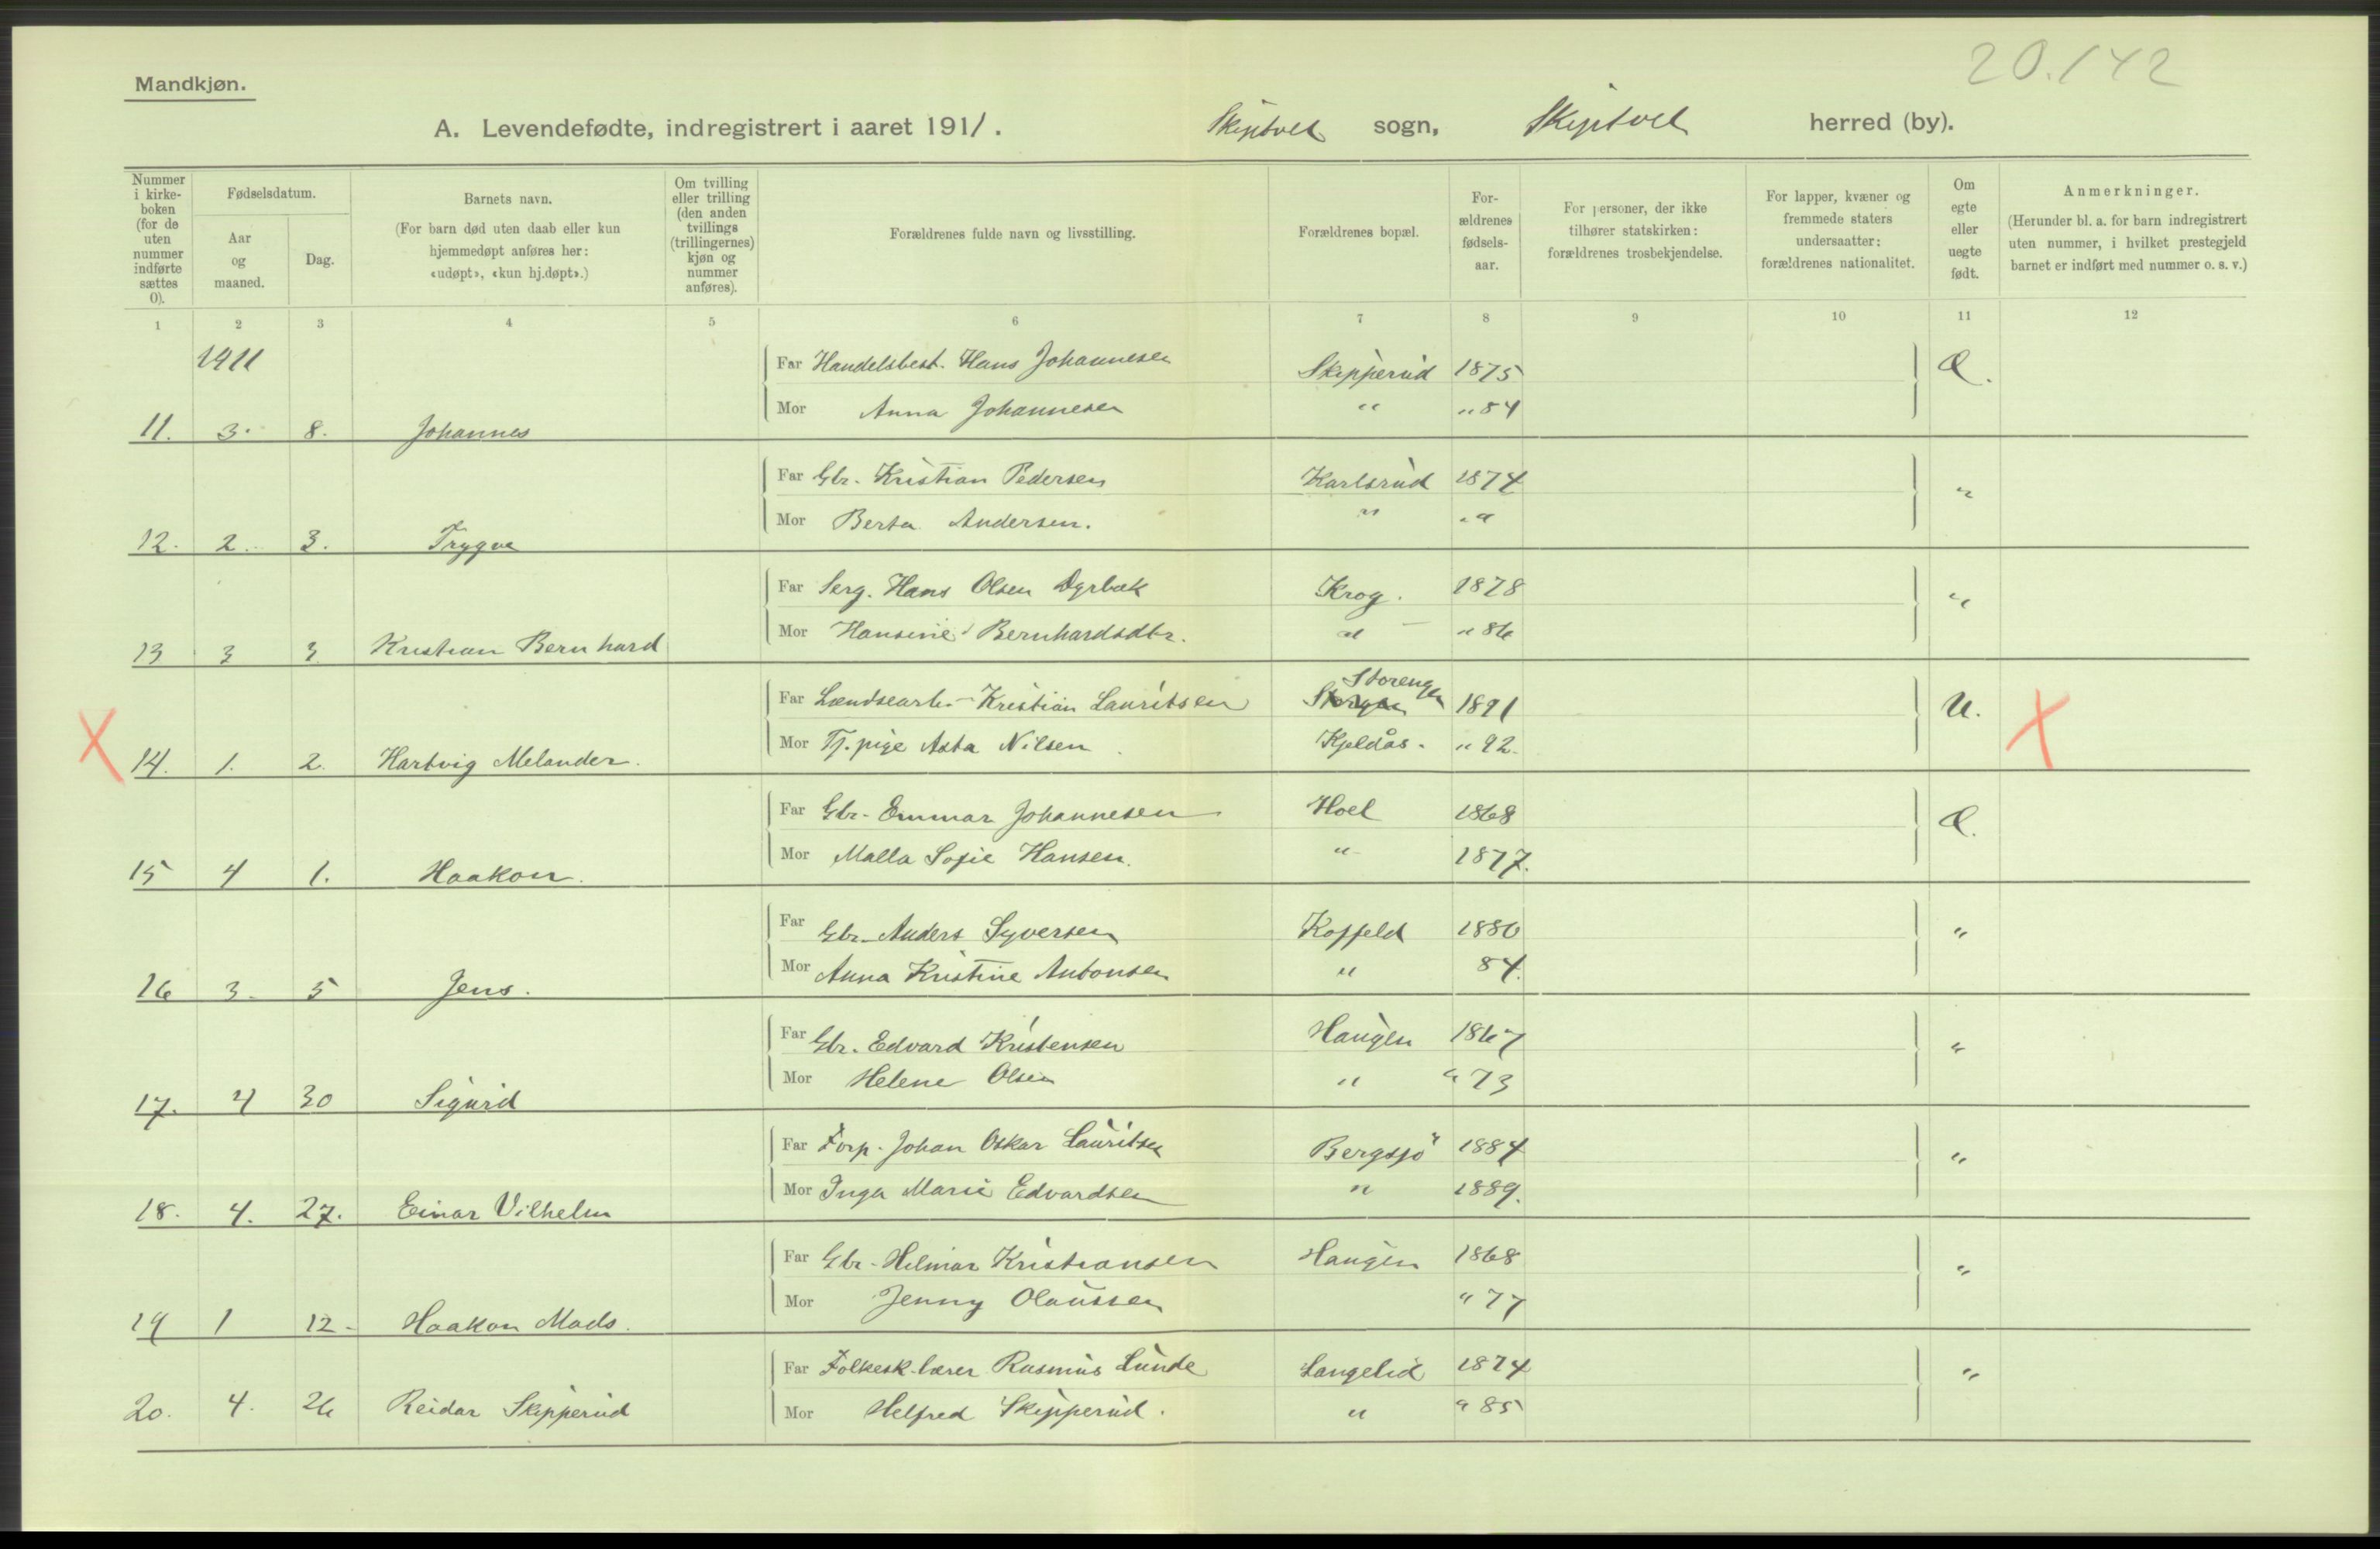 20.142
Mandkjøn.
A. Levendefødte, indregistrert i aaret 1911. Skiptvet sogn, Skiptvet herred (by).
Nummer i kirkeboken (for de uten nummer indførte sættes 0).
Fødselsdatum.
Aar og maaned.
Dag.
Barnets navn.
(For barn død uten daab eller kun hjemmedøpt anføres her: «udøpt», «kun hj.døpt».)
Om tvilling eller trilling (den anden tvillings (trillingernes) kjøn og nummer anføres).
Forældrenes fulde navn og livsstilling.
Forældrenes bopæl.
Forældrenes fødselsaar.
For personer, der ikke tilhører statskirken: forældrenes trosbekjendelse.
For lapper, kvæner og fremmede staters undersaatter: forældrenes nationalitet.
Om egte eller uegte født.
Anmerkninger.
(Herunder bl. a. for barn indregistrert uten nummer, i hvilket prestegjeld barnet er indført med nummer o. s. v.)
1 2 3 4 5 6 7 8 9 10 11 12
1911
Far Handelsbest. Hans Johannesen Skipperud 1875 Æ.
Mor Anna Johannesen " " 84
11. 3. 8. Johannes
Far Gbr. Kristian Pedersen Karlsrud 1874 "
Mor Berta Andersen. " " "
12. 2. 3. Trygve
Far Serg. Hans Olsen Dyrbæk Krog. 1878 "
Mor Hansine Bernhardsdtr. " " 86
13 3 3 Kristian Bernhard
Storengen
Far Kristian Lauritsen 1891 U. X
Mor Tj. pige Asta Nilsen Kjeldås. " 92.
X 14. 1. 2. Hartvig Melander.
Far Gbr. Emmar Johannesen Hoel 1868 Æ.
Mor Malla Sofie Hansen. " 1877.
15 4 1. Haakon.
Far Gbr. Anders Syversen Kopfeld 1880 "
Mor Anna Kristine Antonsen " 84.
16 3. 5 Jens.
Far Gbr. Edvard Kristensen Haugen 1867 "
Mor Helene Olsen " " 73
17. 4 30 Sigurd
Far Forp. Johan Oskar Lauritsen Bergsjö 1884 "
Mor Inga Marie Edvardsen " 1889.
18. 4. 27. Einar Vilhelm
Far Gbr. Helmar Kristiansen Haugen 1868 "
Mor Jenny Olaussen " 77
19 1 12. Haakon Mads.
Far Folkesk. lærer Rasmus Lunde Langelid 1874 "
Mor Helfred Skipperud. " " 85
20. 4. 26 Reidar Skipperud